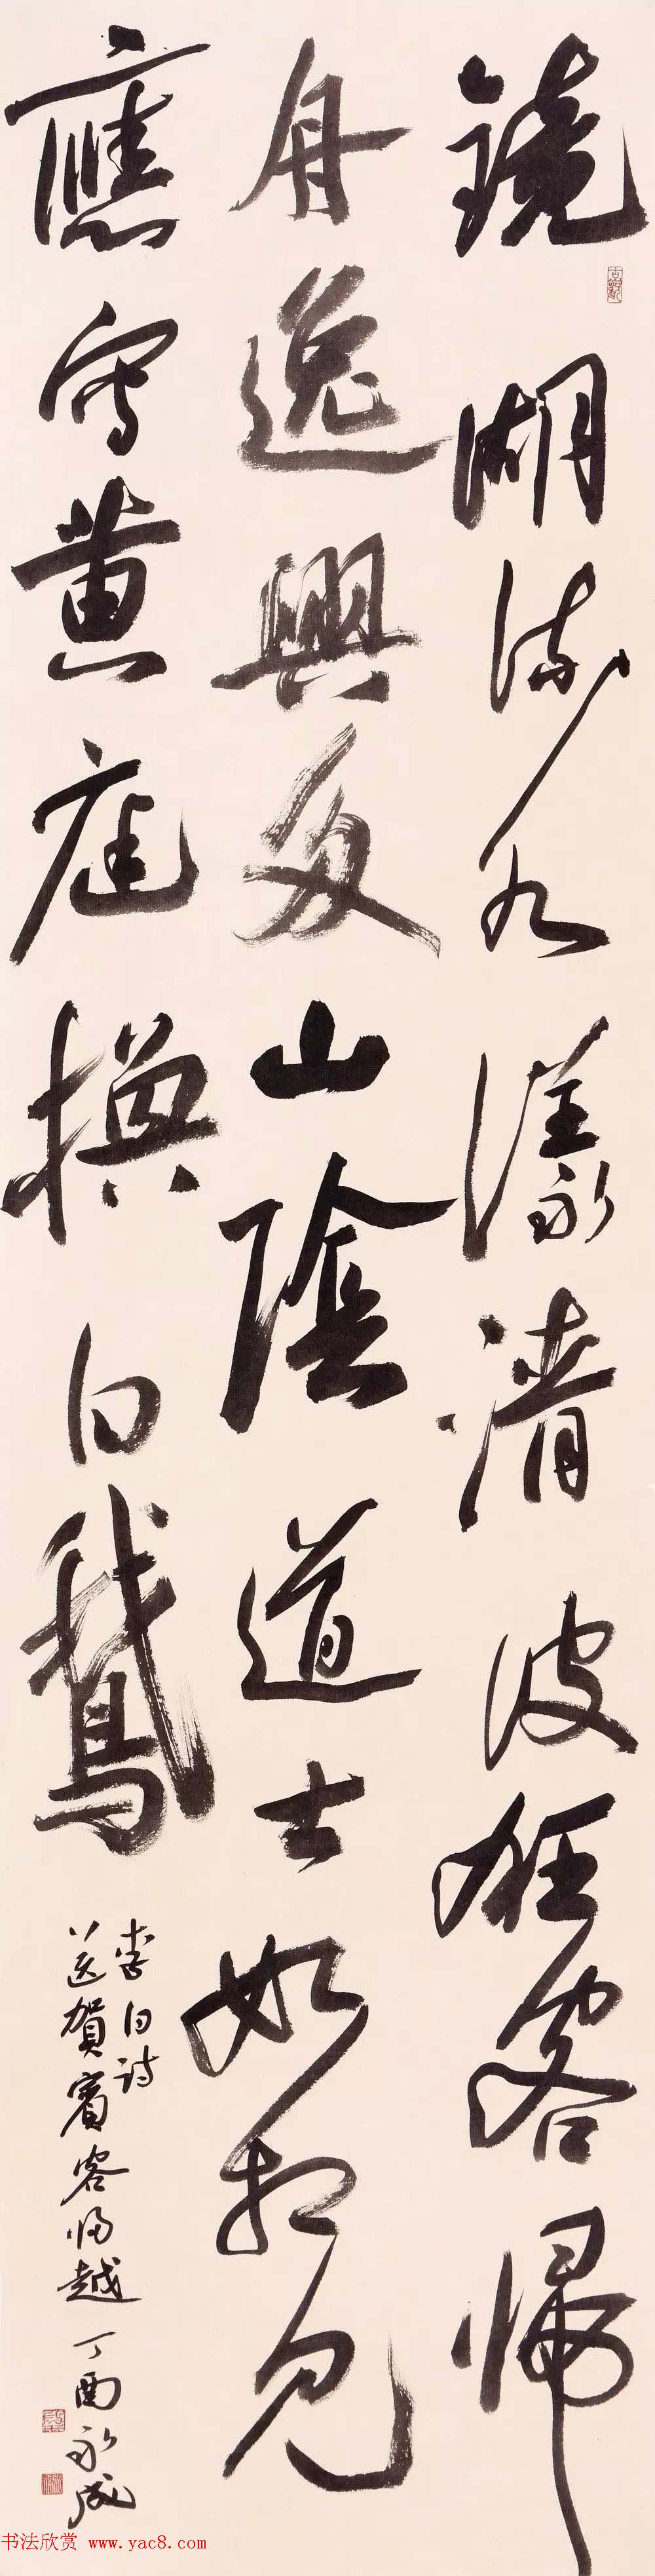 镜湖流水漾清波狂客归
舟逸興多山陰道士如相见
應写黄庭换白鹅
李白诗
送賀賓客归越 丁酉永成
书法欣赏 www.yac8.com